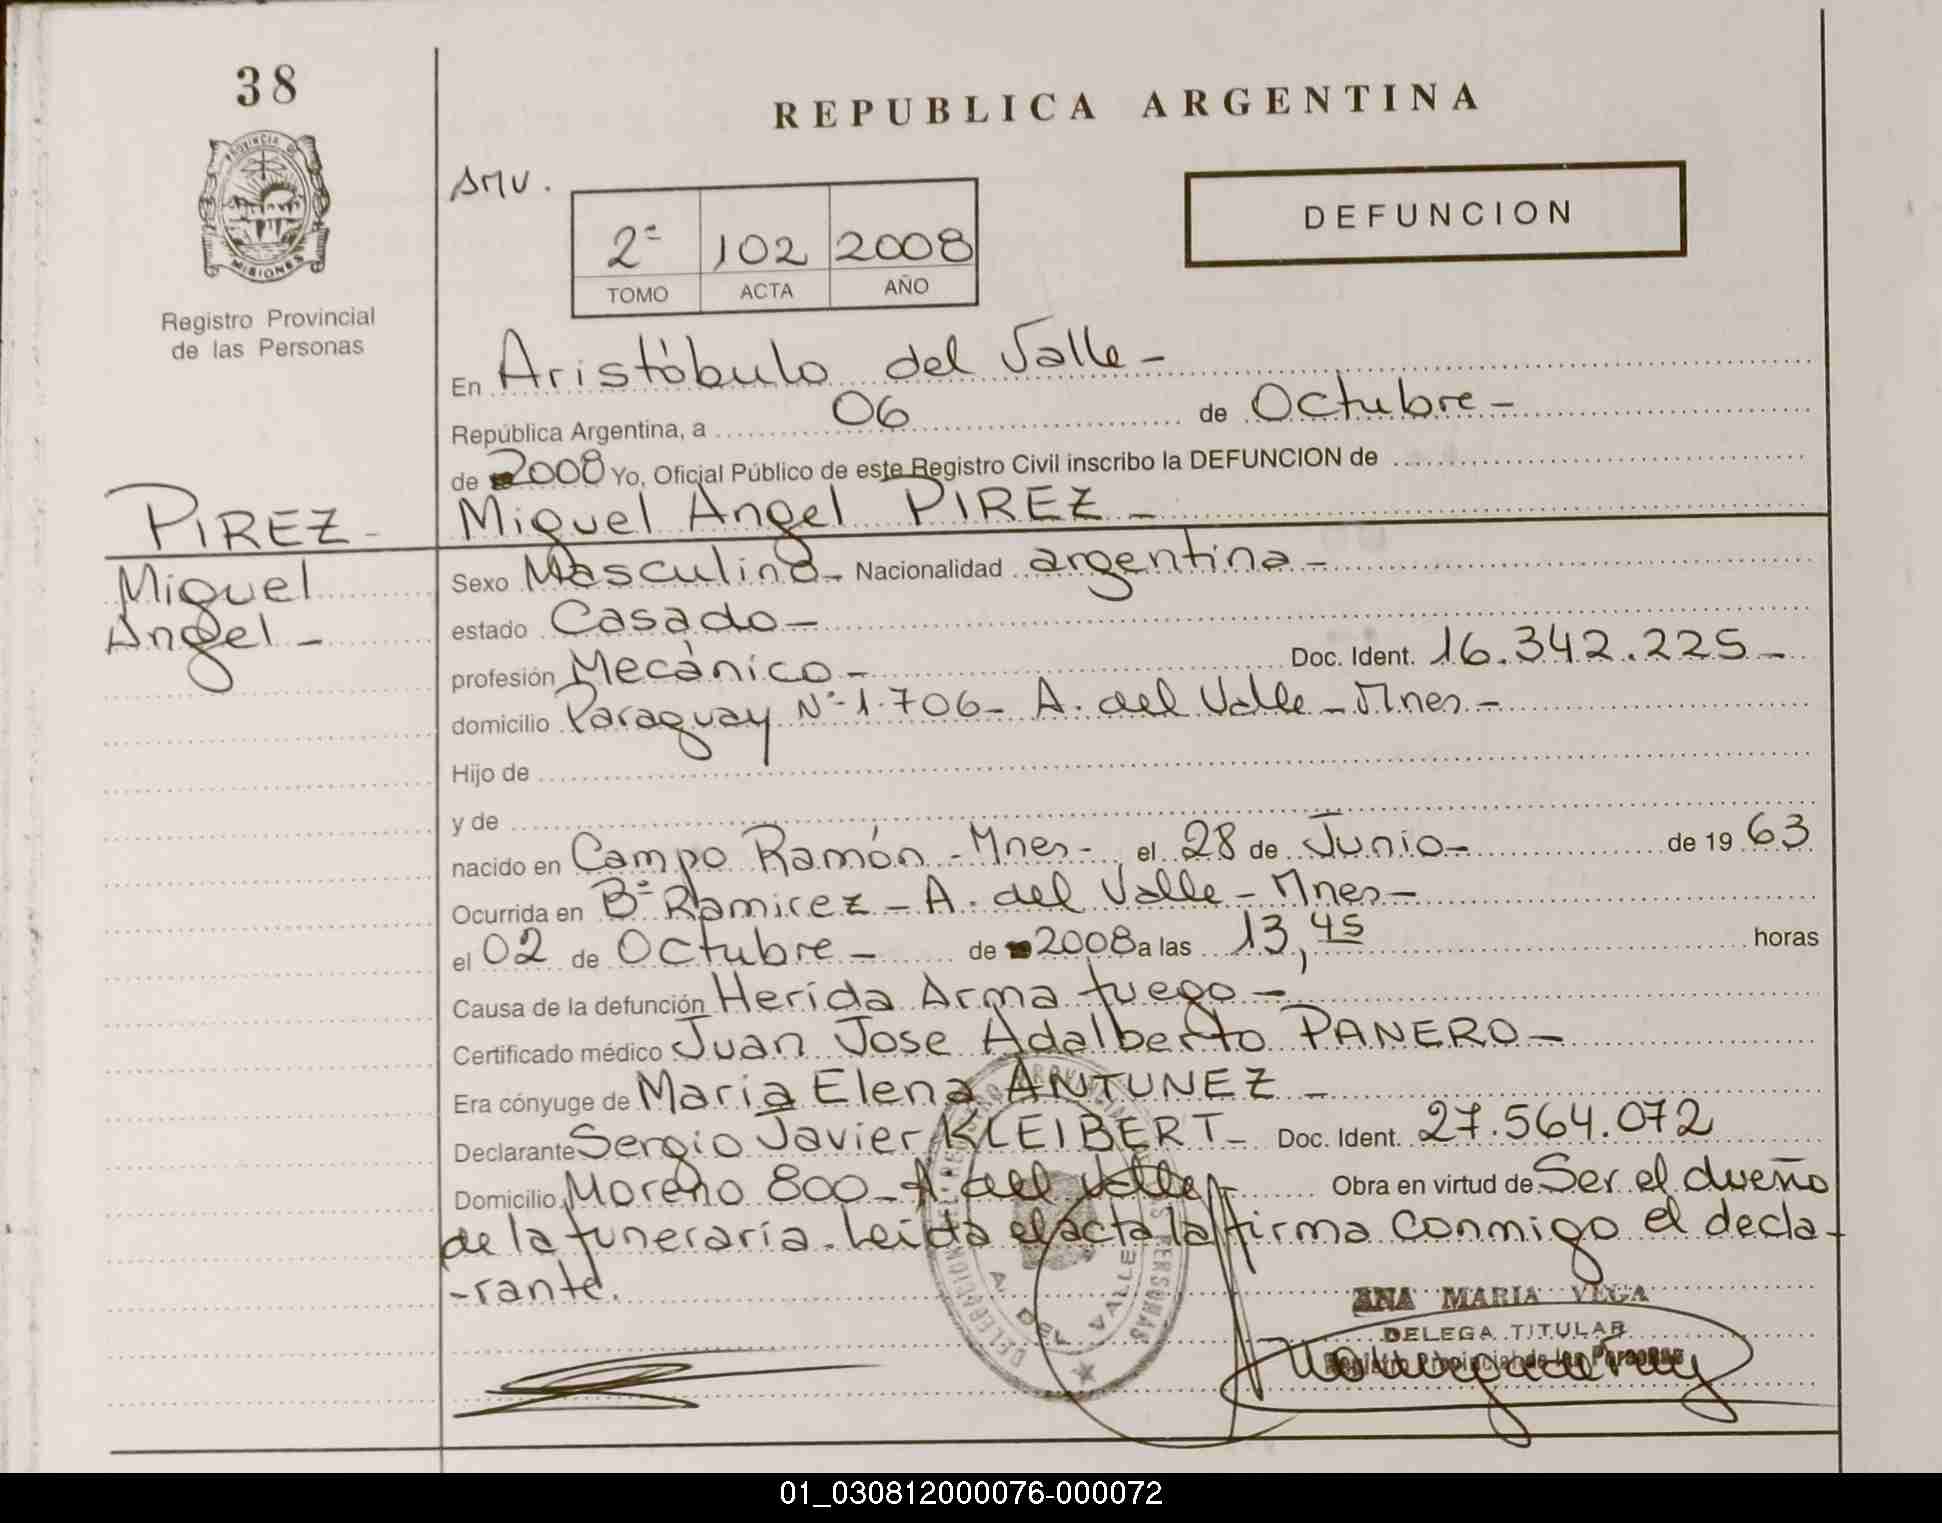 38
REPUBLICA ARGENTINA
PROVINCIA DE
MISIONES
Registro Provincial
de las Personas
AMV.
2º 102 2008
TOMO ACTA AÑO
DEFUNCION
En Aristóbulo del Valle -
República Argentina, a 06 de Octubre -
de 2008 Yo, Oficial Público de este Registro Civil inscribo la DEFUNCION de
PIREZ -
Miguel
Angel -
Miguel Angel PIREZ -
Sexo Masculino - Nacionalidad argentina -
estado Casado -
profesión Mecánico - Doc. Ident. 16.342.225 -
domicilio Paraguay Nº 1.706 - A. del Valle - Mnes -
Hijo de
y de
nacido en Campo Ramón - Mnes - el 28 de Junio - de 19 63
Ocurrida en Bº Ramirez - A. del Valle - Mnes -
el 02 de Octubre - de 2008 a las 13,45 horas
Causa de la defunción Herida Arma fuego -
Certificado médico Juan Jose Adalberto PANERO -
Era cónyuge de Maria Elena ANTUNEZ -
Declarante Sergio Javier KLEIBERT - Doc. Ident. 27.564.072
Domicilio Moreno 800 - A. del Valle - Obra en virtud de Ser el dueño
de la funeraría. Leída el acta la firma conmigo el decla-
-rante.
A. DEL VALLE
ANA MARIA VEGA
DELEGA TITULAR
Registro Provincial de las Personas
01_030812000076-000072